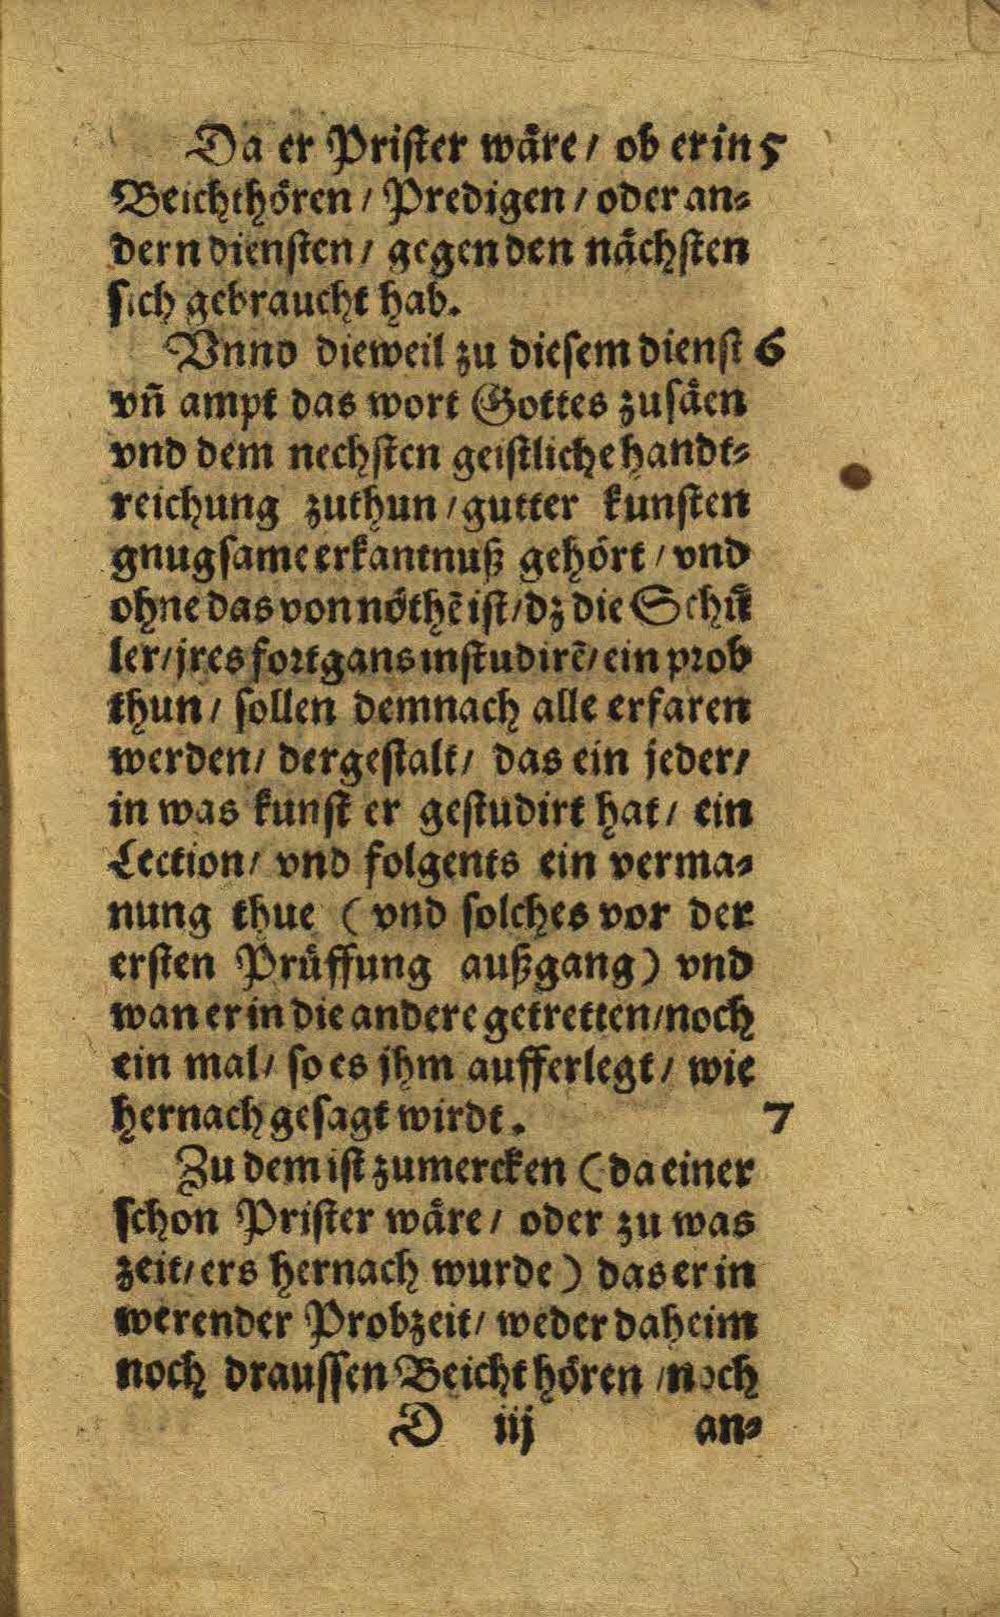 Da er Prister wåre / ob er in 5
Beichthören / Predigen / oder an⸗
dern diensten / gegen den nåchsten
sich gebraucht hab.
Vnnd dieweil zu diesem dienst 6
vn̄ ampt das wort Gottes zusåen
vnd dem nechsten geistliche handt⸗
reichung zuthun / gutter kunsten
gnugsame erkantnuß gehört / vnd
ohne das von nöthē ist / dz die Schů
ler / jres fortgans in studirē / ein prob
thun / sollen demnach alle erfaren
werden / dergestalt / das ein jeder /
in was kunst er gestudirt hat / ein
Lection / vnd folgents ein verma⸗
nung thue ( vnd solches vor der
ersten Prüffung außgang) vnd
wan er in die andere getretten / noch
ein mal / so es jhm aufferlegt / wie
hernach gesagt wirdt. 7
Zu dem ist zumercken ( da einer
schon Prister wåre / oder zu was
zeit / ers hernach wurde ) das er in
werender Probzeit / weder daheim
noch draussen Beicht hören / noch
D iij an⸗